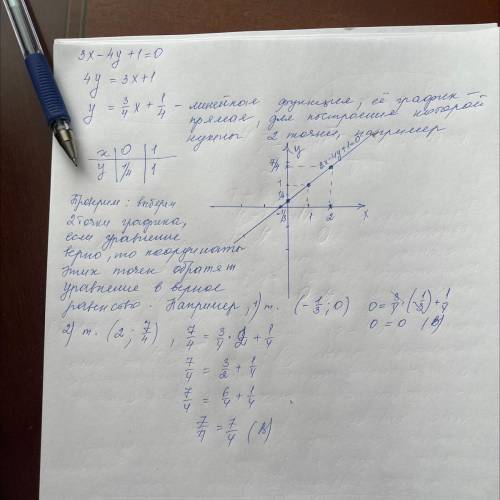 3x-4y+1=0
4y = 3x+1
y = 3/4 x + 1/4 - линейная функция, её график -
прямая, для построения которой
нужны 2 точки, например
x | 0 | 1
y | 1/4 | 1
y
7/4
1
1/4
-1/3
1
2
x
3x-4y+1=0
Проверим: выберем
2 точки графика,
если уравнение
верно, то координаты
этих точек обратят
уравнение в верное
равенство. Например, 1) т. (-1/3; 0) 0 = 3/4 · (-1/3) + 1/4
0 = 0 (В)
2) т. (2; 7/4), 7/4 = 3/4 · 2 + 1/4
7/4 = 3/2 + 1/4
7/4 = 6/4 + 1/4
7/4 = 7/4 (В)